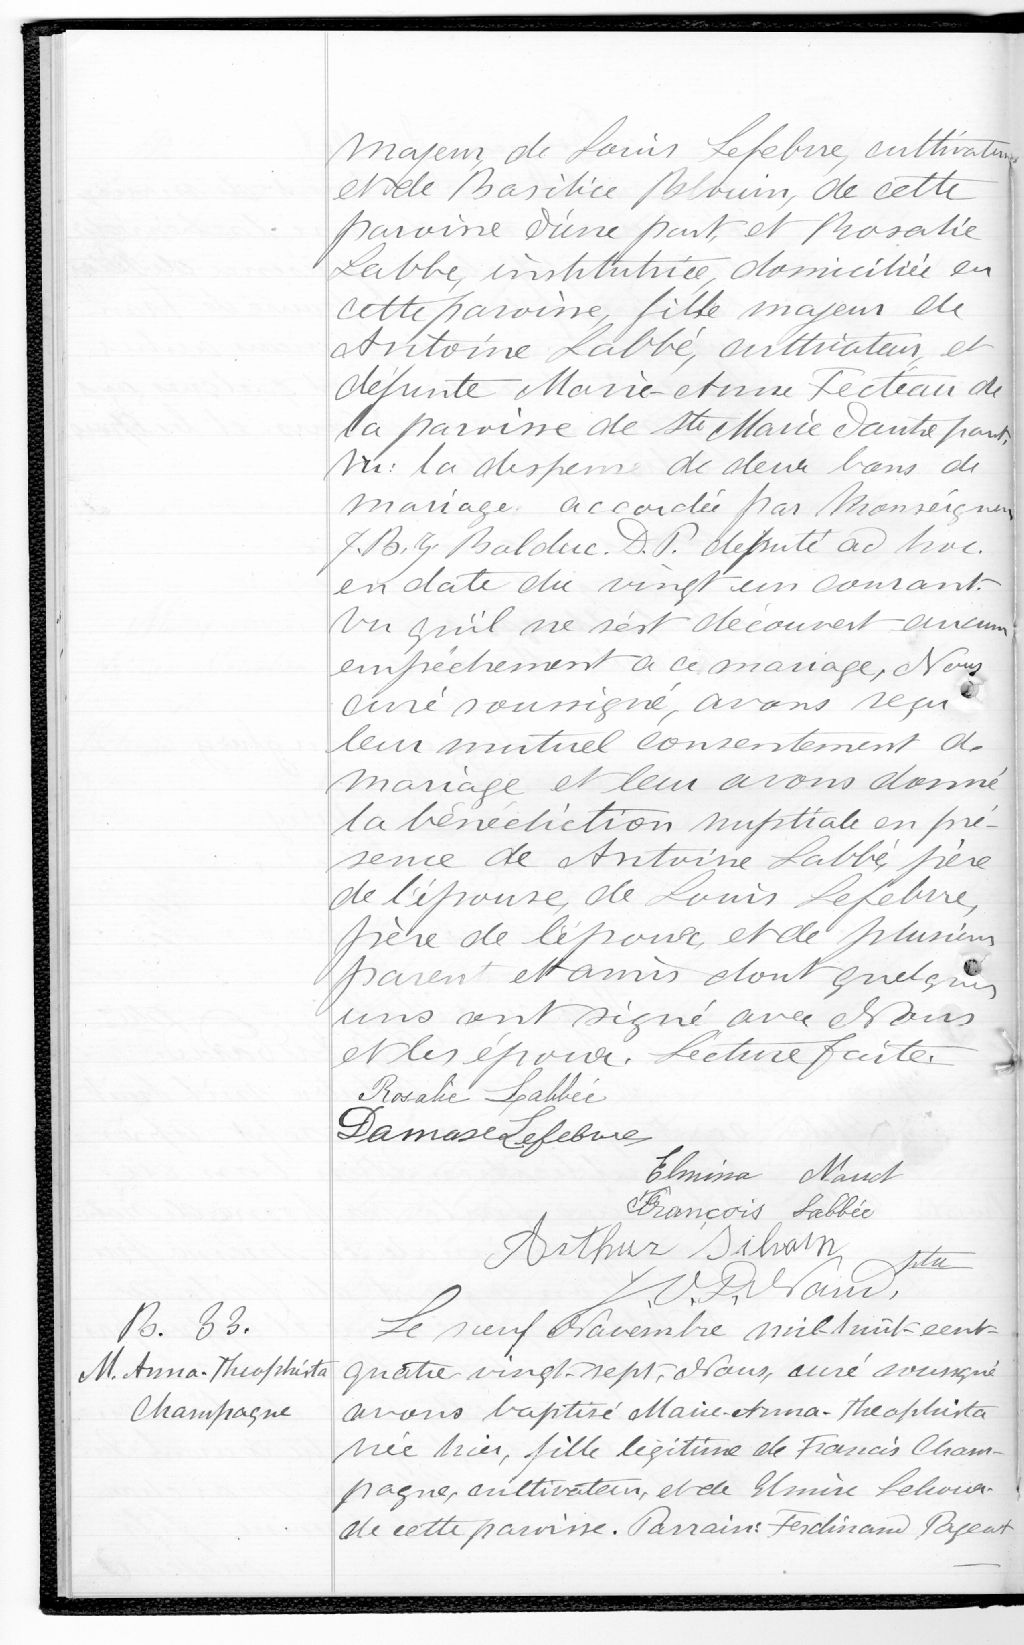 majeur, de Louis Lefebvre, cultivateur
et de Basilice Blouin, de cette
paroisse d'une part, et Rosalie
Labbé, institutrice, domiciliée en
cette paroisse, fille majeur de
Antoine Labbé, cultivateur, et
défunte Marie-Anne Fecteau de
la paroisse de Ste Marie d'autre part,
Vu: la dispense de deux bans de
mariage accordée par Monseigneur
J. B. Z Bolduc. D. P. député ad hoc.
en date du vingt-un courant.
Vu qu'il ne s'est découvert aucun
empêchement a ce mariage, Nous
curé soussigné, avons reçu
leur mutuel consentement de
mariage et leur avons donné
la bénédiction nuptiale en pré-
sence de Antoine Labbé, père
de l'épouse, de Louis Lefebvre,
père de l'époux, et de plusieurs
parent et amis dont quelques
uns ont signé avec Nous
et les époux. Lecture faite.
Rosalie Labbée
Damase Lefebvre
Elmina Naud
François Labbée
Arthur Silvain
J. V. P. Naud, ptre
B. 33.
M. Anna-Theophista
Champagne
Le neuf Novembre mil-huit-cent-
quatre-vingt-sept, Nous, curé soussigné
avons baptisé Marie-Anna-Theophista
née hier, fille légitime de Francis Cham-
pagne, cultivateur, et de Elmire Lehoux
de cette paroisse. Parrain: Ferdinand Pageot